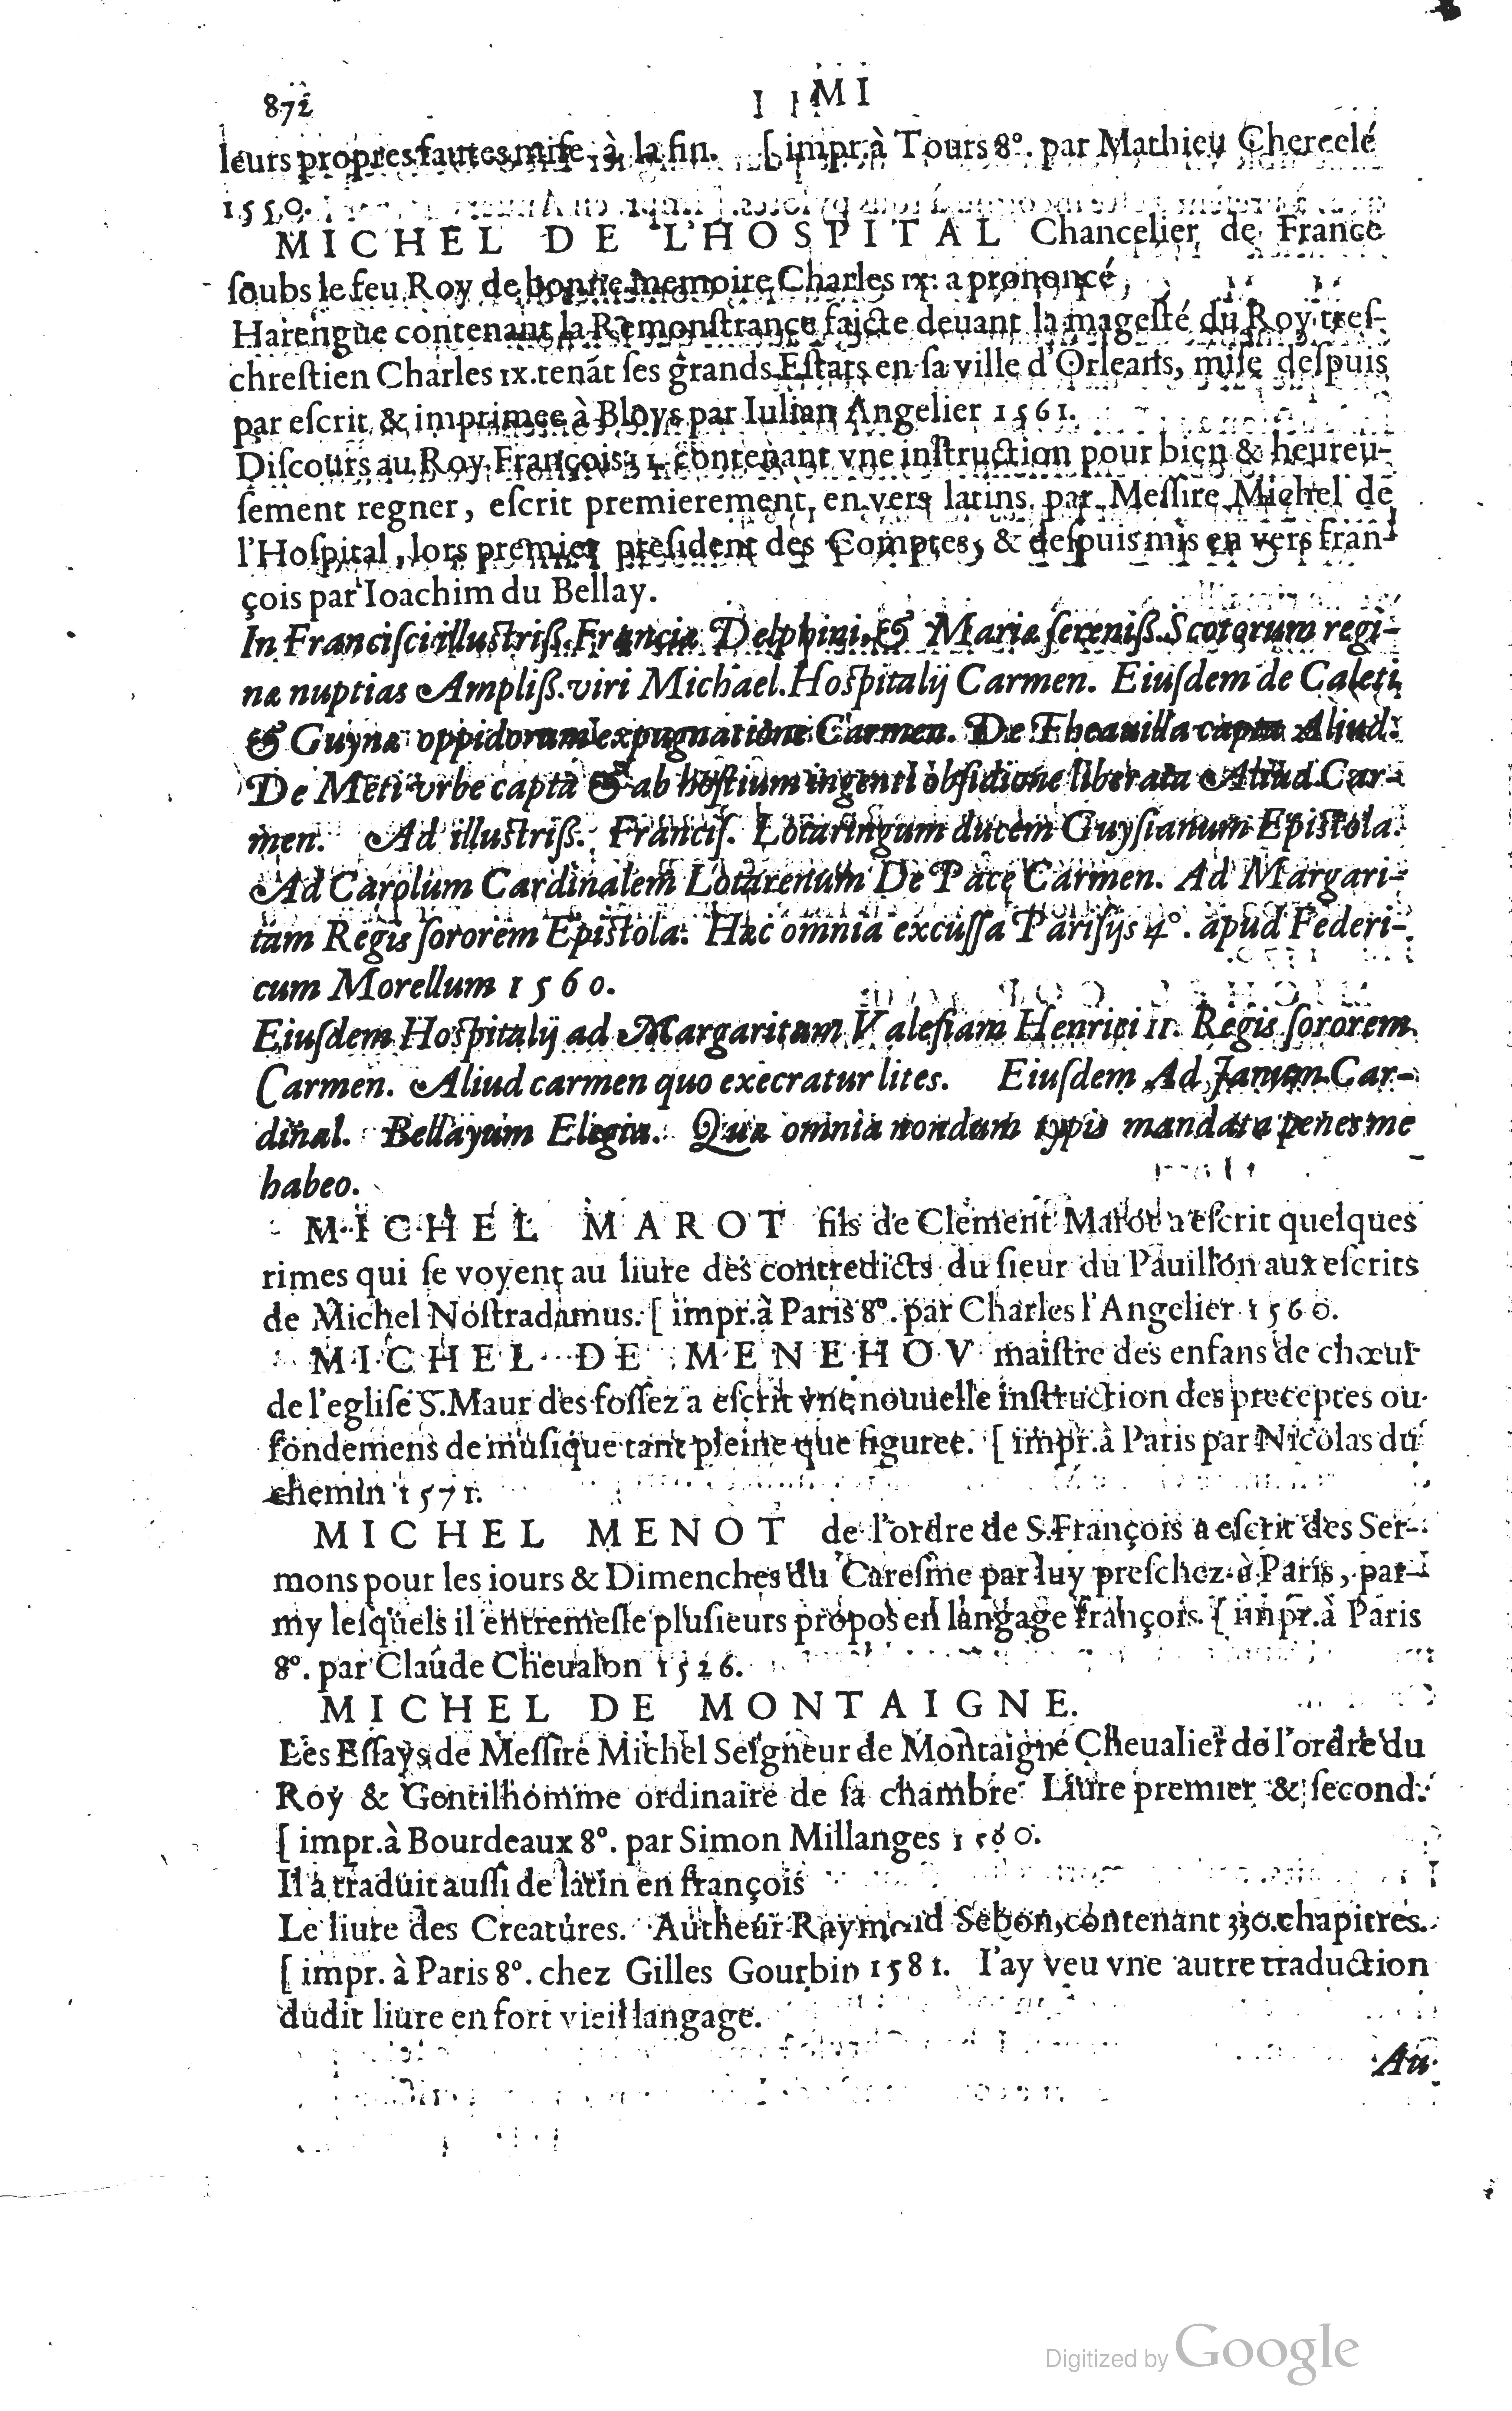 872 MI
leurs propres fautes mise à la fin. [ impr. à Tours 8°. par Mathieu Chercelé
1550.
MICHEL DE L'HOSPITAL Chancelier de France
ſoubs le feu Roy de bonne memoire Charles IX. a prononcé,
Harengue contenant la Remonſtrance faicte deuant la mageſté du Roy treſ-
chreſtien Charles IX. tenãt ſes grands Eſtats en ſa ville d'Orleans, miſe deſpuis
par eſcrit & imprimee à Bloys par Iulian Angelier 1561.
Diſcours au Roy François II. contenant vne inſtruction pour bien & heureu-
ſement regner, eſcrit premierement en vers latins par Meſſire Michel de
l'Hoſpital, lors premier preſident des Comptes, & deſpuis mis en vers fran-
çois par Ioachim du Bellay.
In Franciſci illuſtriß. Franciæ Delphini, & Mariæ ſereniß. Scotorum regi-
næ nuptias Ampliß. viri Michael. Hoſpitalij Carmen. Eiuſdem de Caleti
& Guynæ oppidorum expugnatione Carmen. De Theauilla capta Aliud.
De Meti vrbe capta & ab hoſtium ingenti obſidione liberata Aliud Car-
men. Ad illuſtriß. Franciſ. Lotaringum ducem Guyſianum Epiſtola.
Ad Carolum Cardinalem Lotarenum De Pace Carmen. Ad Margari-
tam Regis ſororem Epiſtola. Hæc omnia excuſſa Pariſijs 4°. apud Federi-
cum Morellum 1560.
Eiuſdem Hoſpitalij ad Margaritam Valeſiam Henrici II. Regis ſororem
Carmen. Aliud carmen quo execratur lites. Eiuſdem Ad Janum Car-
dinal. Bellayum Elegia. Quæ omnia nondum typis mandata penes me
habeo.
MICHEL MAROT fils de Clement Marot a eſcrit quelques
rimes qui ſe voyent au liure des contredicts du ſieur du Pauillon aux eſcrits
de Michel Noſtradamus. [ impr. à Paris 8°. par Charles l'Angelier 1560.
MICHEL DE MENEHOV maiſtre des enfans de chœur
de l'egliſe S. Maur des foſſez a eſcrit vne nouuelle inſtruction des preceptes ou
fondemens de muſique tant pleine que figuree. [ impr. à Paris par Nicolas du
chemin 1571.
MICHEL MENOT de l'ordre de S. François a eſcrit des Ser-
mons pour les iours & Dimenches du Careſme par luy preſchez à Paris, par-
my leſquels il entremeſle pluſieurs propos en langage françois. [ impr. à Paris
8°. par Claude Cheualon 1526.
MICHEL DE MONTAIGNE.
Les Eſſays de Meſſire Michel Seigneur de Montaigne Cheualier de l'ordre du
Roy & Gentilhomme ordinaire de ſa chambre Liure premier & ſecond.
[ impr. à Bourdeaux 8°. par Simon Millanges 1580.
Il a traduit auſſi de latin en françois
Le liure des Creatures. Autheur Raymond Sebon, contenant 330. chapitres.
[ impr. à Paris 8°. chez Gilles Gourbin 1581. I'ay veu vne autre traduction
dudit liure en fort vieil langage.
Au
Digitized by Google